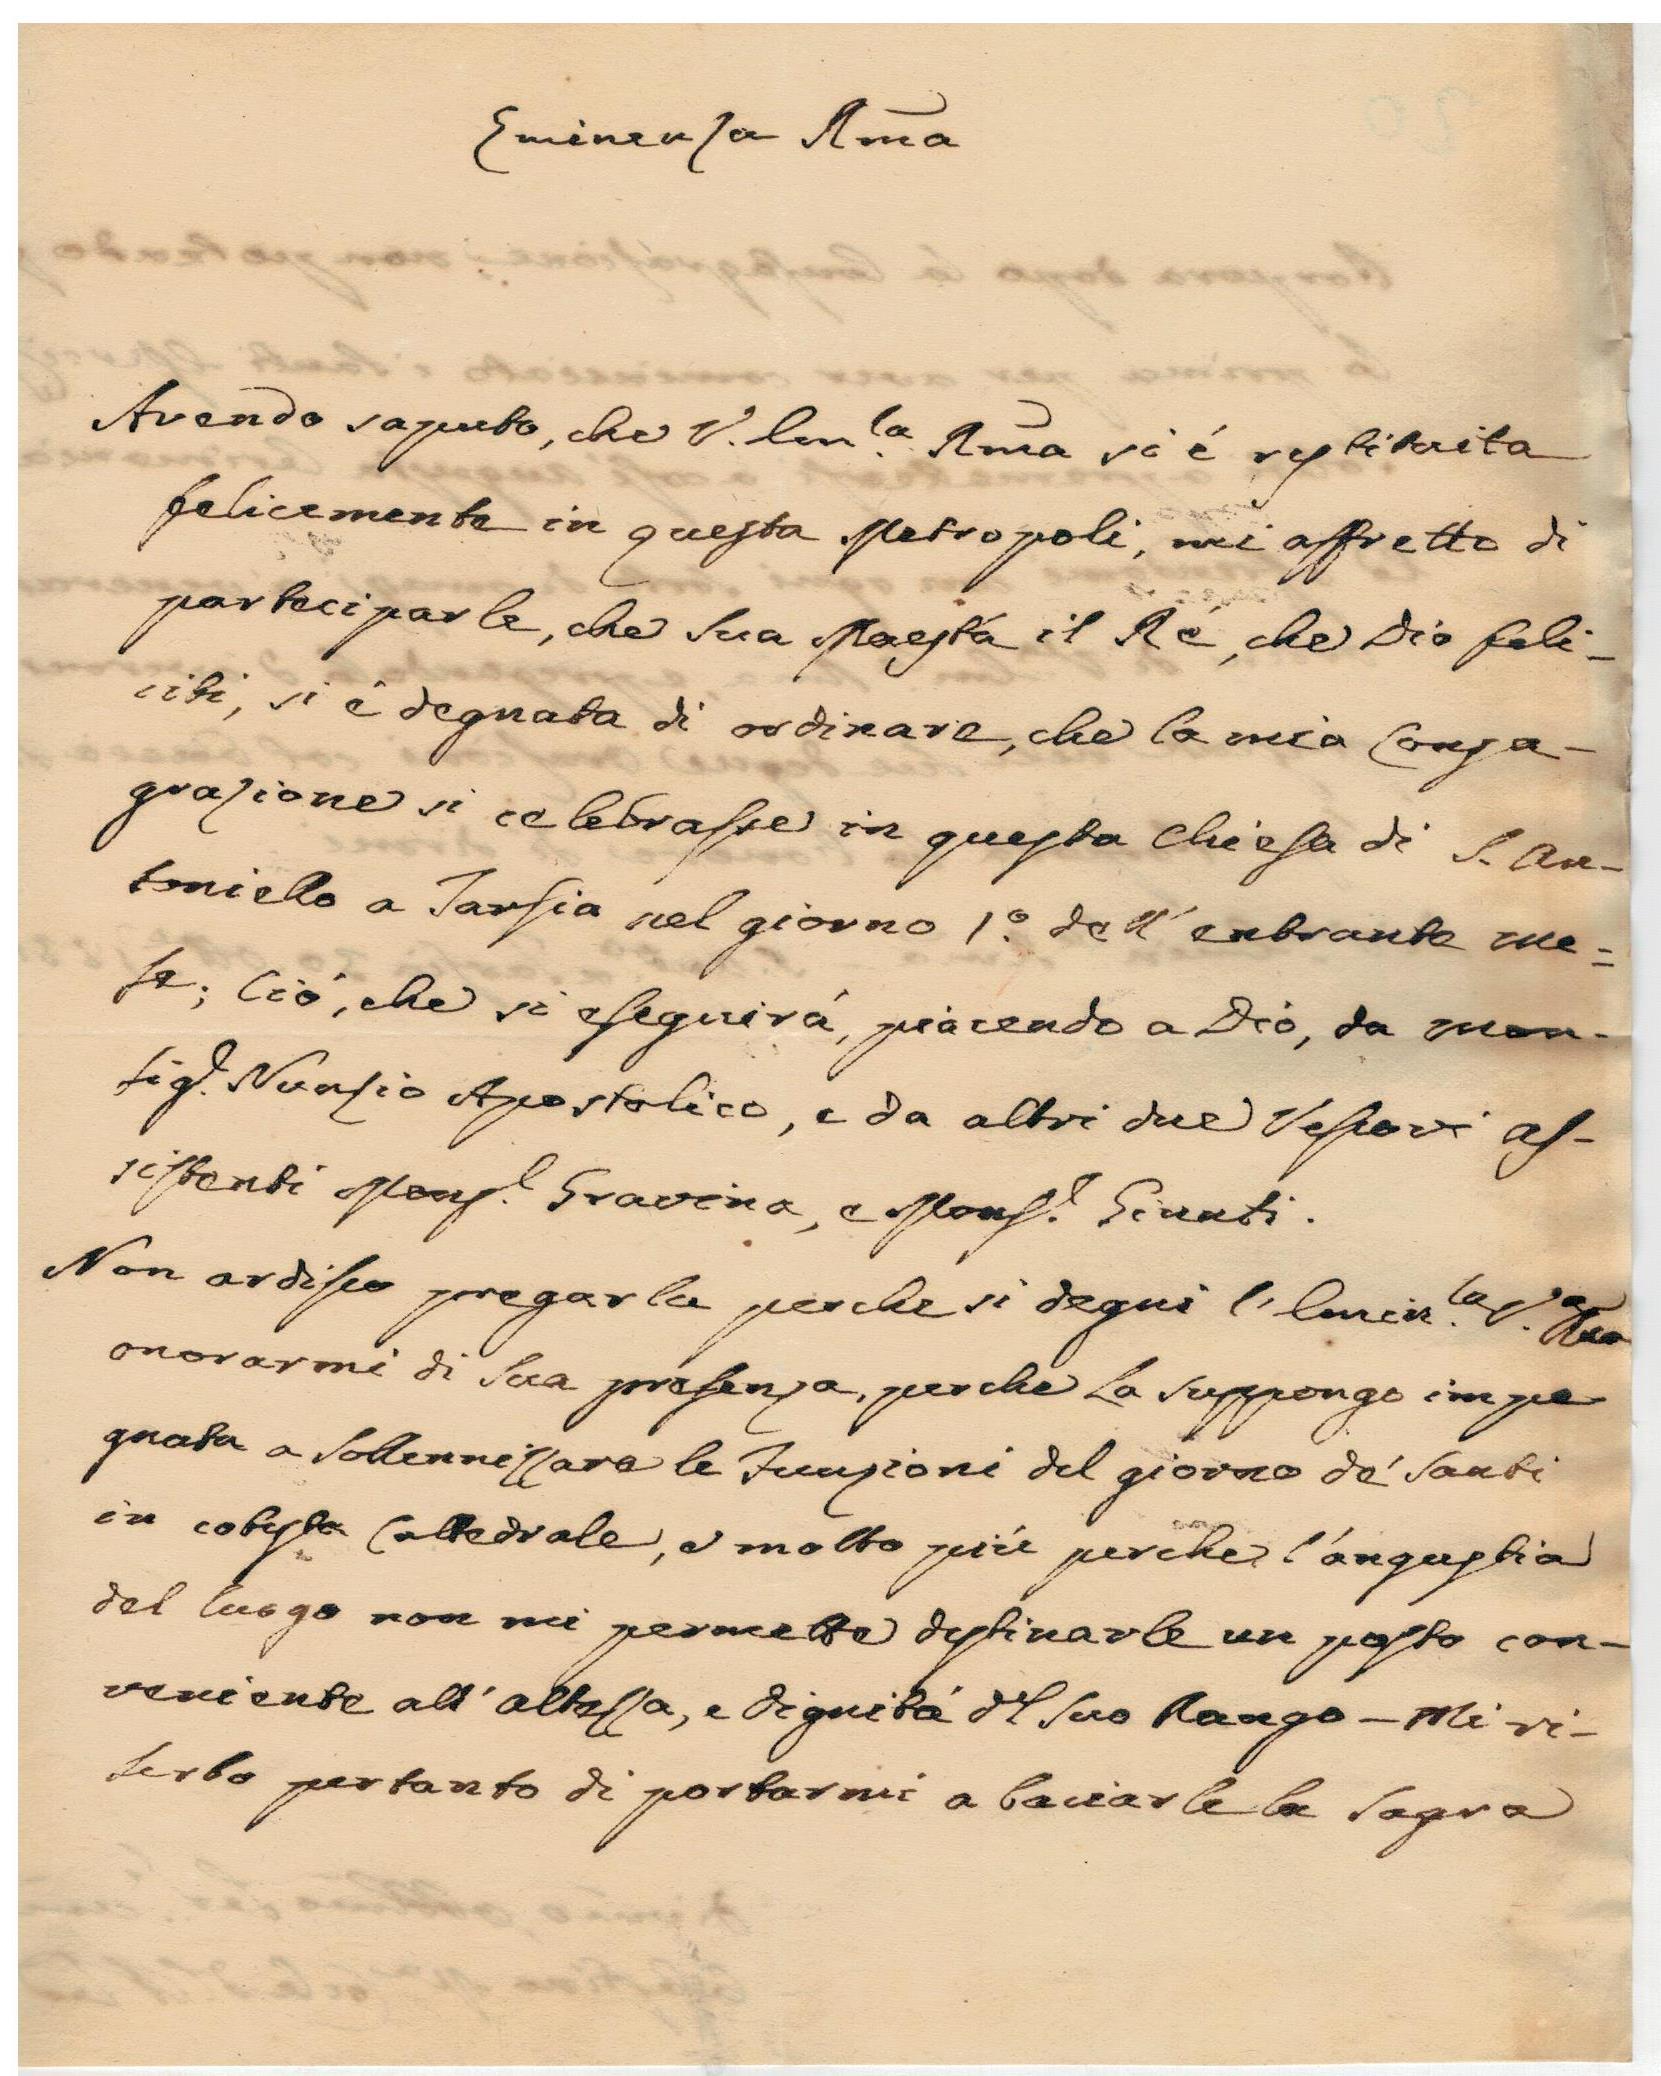 Eminenza Rma
Avendo saputo, che V. Em.la Rma si é restituita
felicemente in questa Metropoli, mi affretto di
parteciparle, che Sua Maestá il Ré, che Dio feli-
citi, si é degnata di ordinare, che la mia Consa-
grazione si celebrasse in questa Chiesa di S. An-
toniello a Tarsia nel giorno 1.o dell' entrante me=
se; Ció, che si eseguirá, piacendo a Dio, da Mon-
sig.r Nunzio Apostolico, e da altri due Vescovi as-
sistenti Mons.r Gravina, e Mons.r Giunti.
Non ardisco pregarla perche si degni l' Emin.la V.a Rma
onorarmi di Sua presenza, perche La suppongo impe
gnata a Sollennizzare le Funzioni del giorno de' Santi
in cotesta Cattedrale, e molto piú perche l'angustia
del luogo non mi permette destinarle un posto con-
veniente all' altezza, e dignitá del Suo Rango - Mi ri-
serbo pertanto di portarmi a baciarle la Sagra